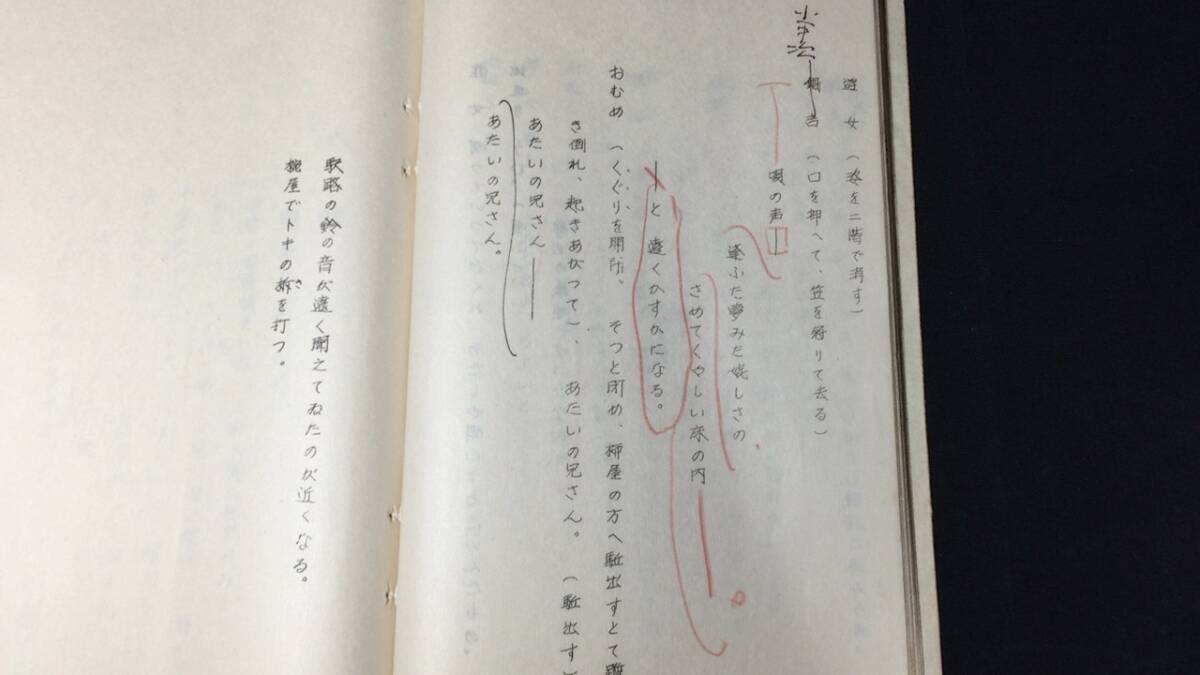 遊女(姿を二階で消す)
小平次
吉(口を押へて、笠を冠りて去る)
唄の声
逢ふた夢みた嬉しさの
さめてくやしい床の内――
―と遠くかすかになる。
おむめ(くぐりを開け、そつと閉め、柳屋の方へ駈出すとて躓
き倒れ、起きあがつて)、あたいの兄さん。(駈出す)
あたいの兄さん――
あたいの兄さん。
駅路の鈴の音が遠く聞えてゐたのが近くなる。
梶屋でトキの柝を打つ。
さ